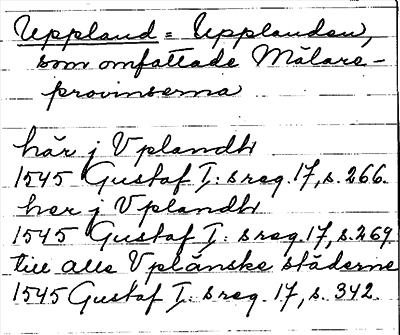 Uppland = Upplanden,
som omfattade Mälare-
provinserna
här j Vplandh
1545 Gustaf I: s reg. 17, s. 266.
her j Vplandh
1545 Gustaf I: s reg. 17, s. 269
till alle Vplänske städerne
1545 Gustaf I: s reg. 17, s. 342.